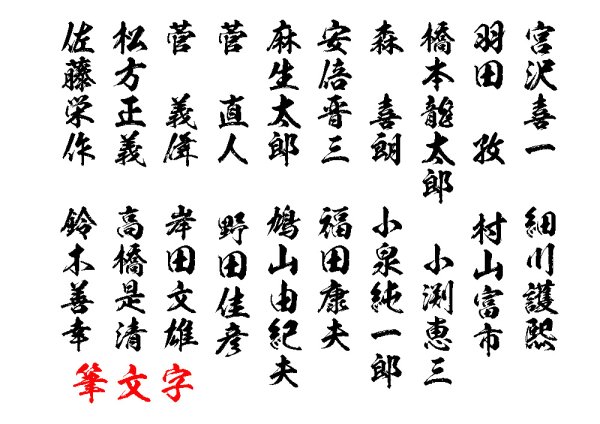 宮沢喜一
細川護熙
羽田 孜
村山富市
橋本龍太郎
小渕恵三
森 喜朗
小泉純一郎
安倍晋三
福田康夫
麻生太郎
鳩山由紀夫
菅 直人
野田佳彦
菅 義偉
岸田文雄
松方正義
高橋是清
佐藤栄作
鈴木善幸
筆文字